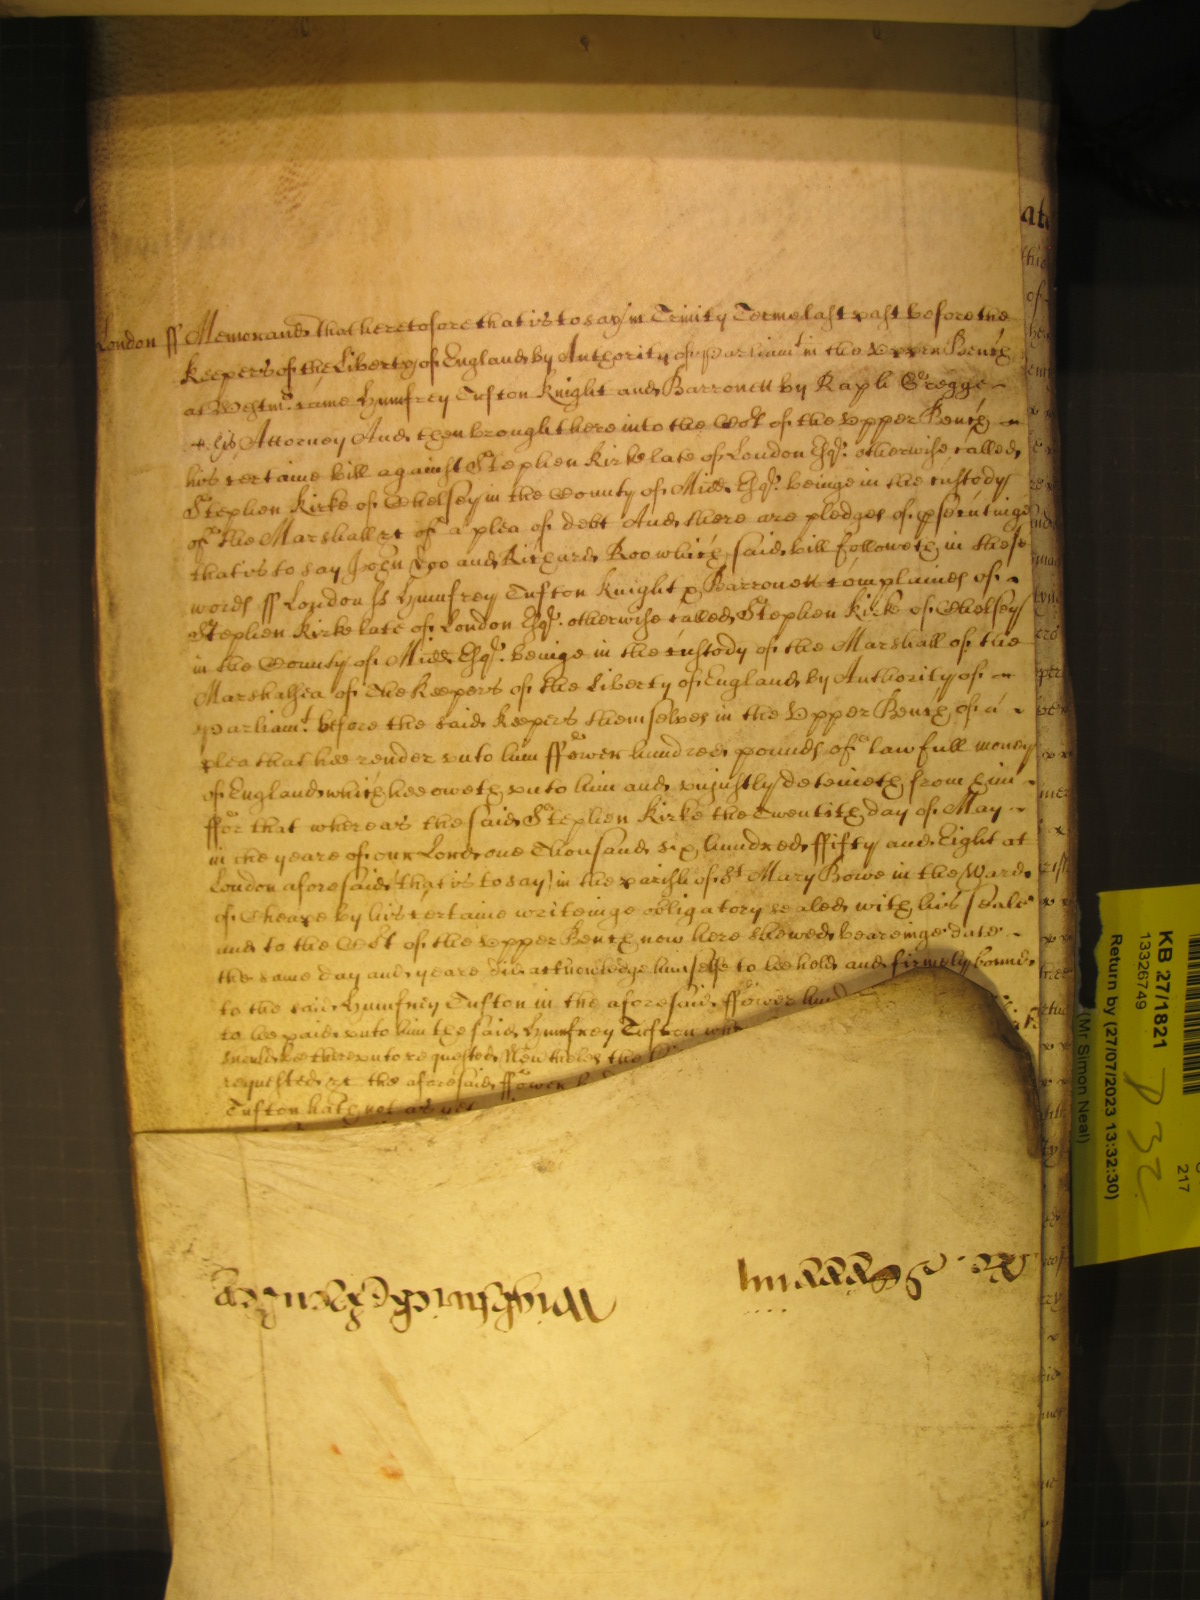 London ss Memorand That heretofore that is to say in Trinity Terme last past before the
Keepers of the Liberty of England by Authority of Parliamt in the Upper Bench
at Westmr came Humfrey Tufton Knight and Barronett by Raph Gregge
his Attorney And then brought here into the Cort of the Upper Bench
his certaine bill against Stephen Kirke late of London Esqr. otherwise called
Stephen Kirke of Chelsey in the County of Midd Esqr. beinge in the custody
of the Marshall &c of a plea of debt And there are pledges of psecutinge
that is to say John Doo and Richard Roo which said bill followeth in these
words ss London ss Humfrey Tufton Knight & Barronett complaines of
Stephen Kirke late of London Esqr. otherwise called Stephen Kirke of Chelsey
in the County of Midd Esqr. beinge in the custody of the Marshall of the
Marshalsea of the Keepers of the Liberty of England by Authority of
Parliamt. before the said Keepers themselves in the Upper Bench of a
plea that hee render unto him ffower hundred pounds of lawfull money
of England which hee oweth unto him and unjustly deteineth from him
ffor that whereas the said Stephen Kirke the Twentith day of May
in the yeare of our Lord one Thousand six hundred ffifty and Eight at
London aforesaid that is to say in the parish of St Mary Bowe in the Ward
of Cheape by his certaine writeinge obligatory sealed with his seale
and to the Cort of the Upper Bench now here shewed beareinge date
the same day and yeare did acknowledge himselfe to bee hold and firmely bound
to the said Humfrey Tufton in the aforesaid ffower hund
to be paid unto him the said Humfrey Tufton
should be thereunto requested Neverthelesse the
requested &c the aforesaid ffower
Tufton hath not as yet
KB 27/1821
13326749
217
Return by (27/07/2023 13:32:30)
(Mr Simon Neal)